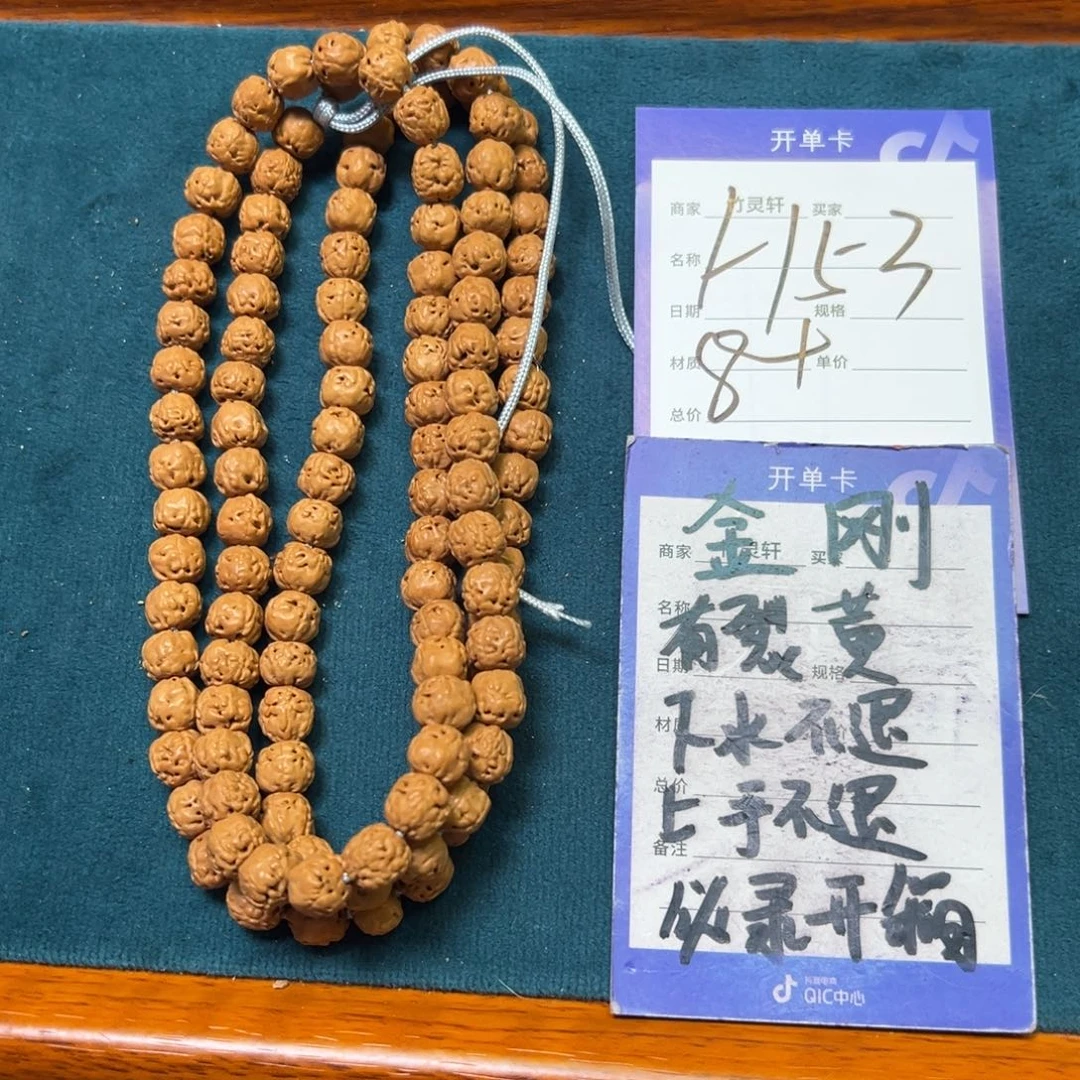 开单卡
商家 竹灵轩 买家
名称
日期 规格
材质 单价
总价
153
8+
开单卡
金刚
商家 灵轩 买
名称
有裂黄
日期 规格
材
下水不退
总价
上手不退
备注
必录开箱
抖音电商
QIC中心